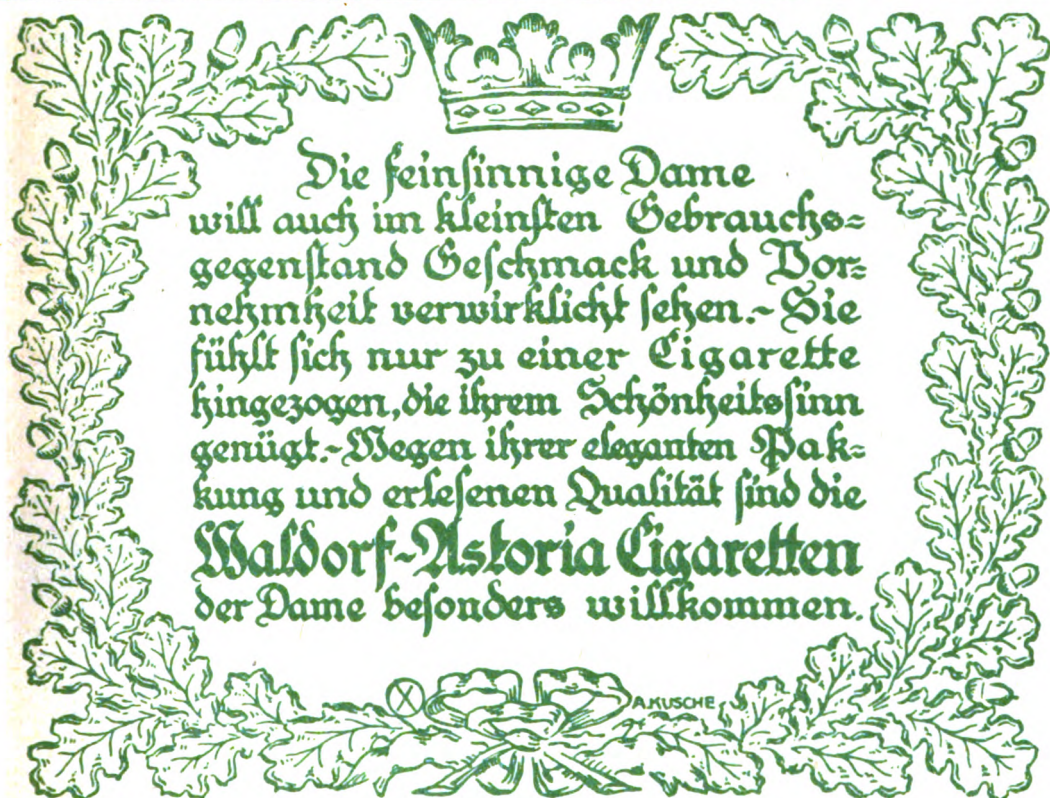 Die feinsinnige Dame
will auch im kleinsten Gebrauchs=
gegenstand Geschmack und Vor=
nehmheit verwirklicht sehen.- Sie
fühlt sich nur zu einer Cigarette
hingezogen, die ihrem Schönheitssinn
genügt.- Wegen ihrer eleganten Pak=
kung und erlesenen Qualität sind die
Waldorf-Astoria Cigaretten
der Dame besonders willkommen.
X
A.KUSCHE